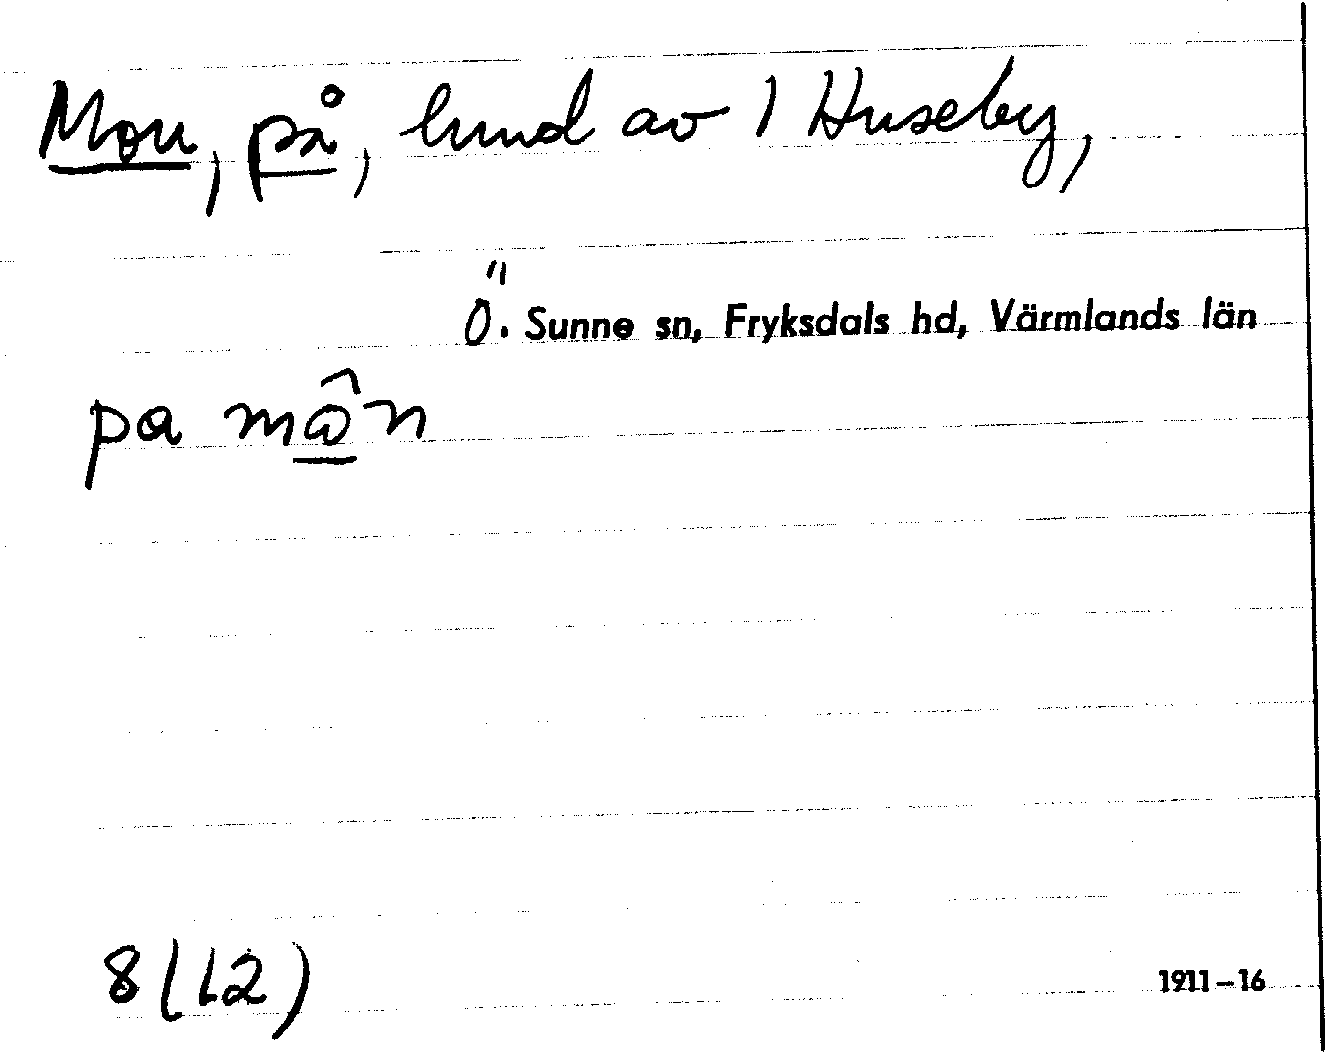 Mon, på, hmnd av 1 Huseby,
Ö. Sunne sn, Fryksdals hd, Värmlands län
pa môn
8(12)
1911-16